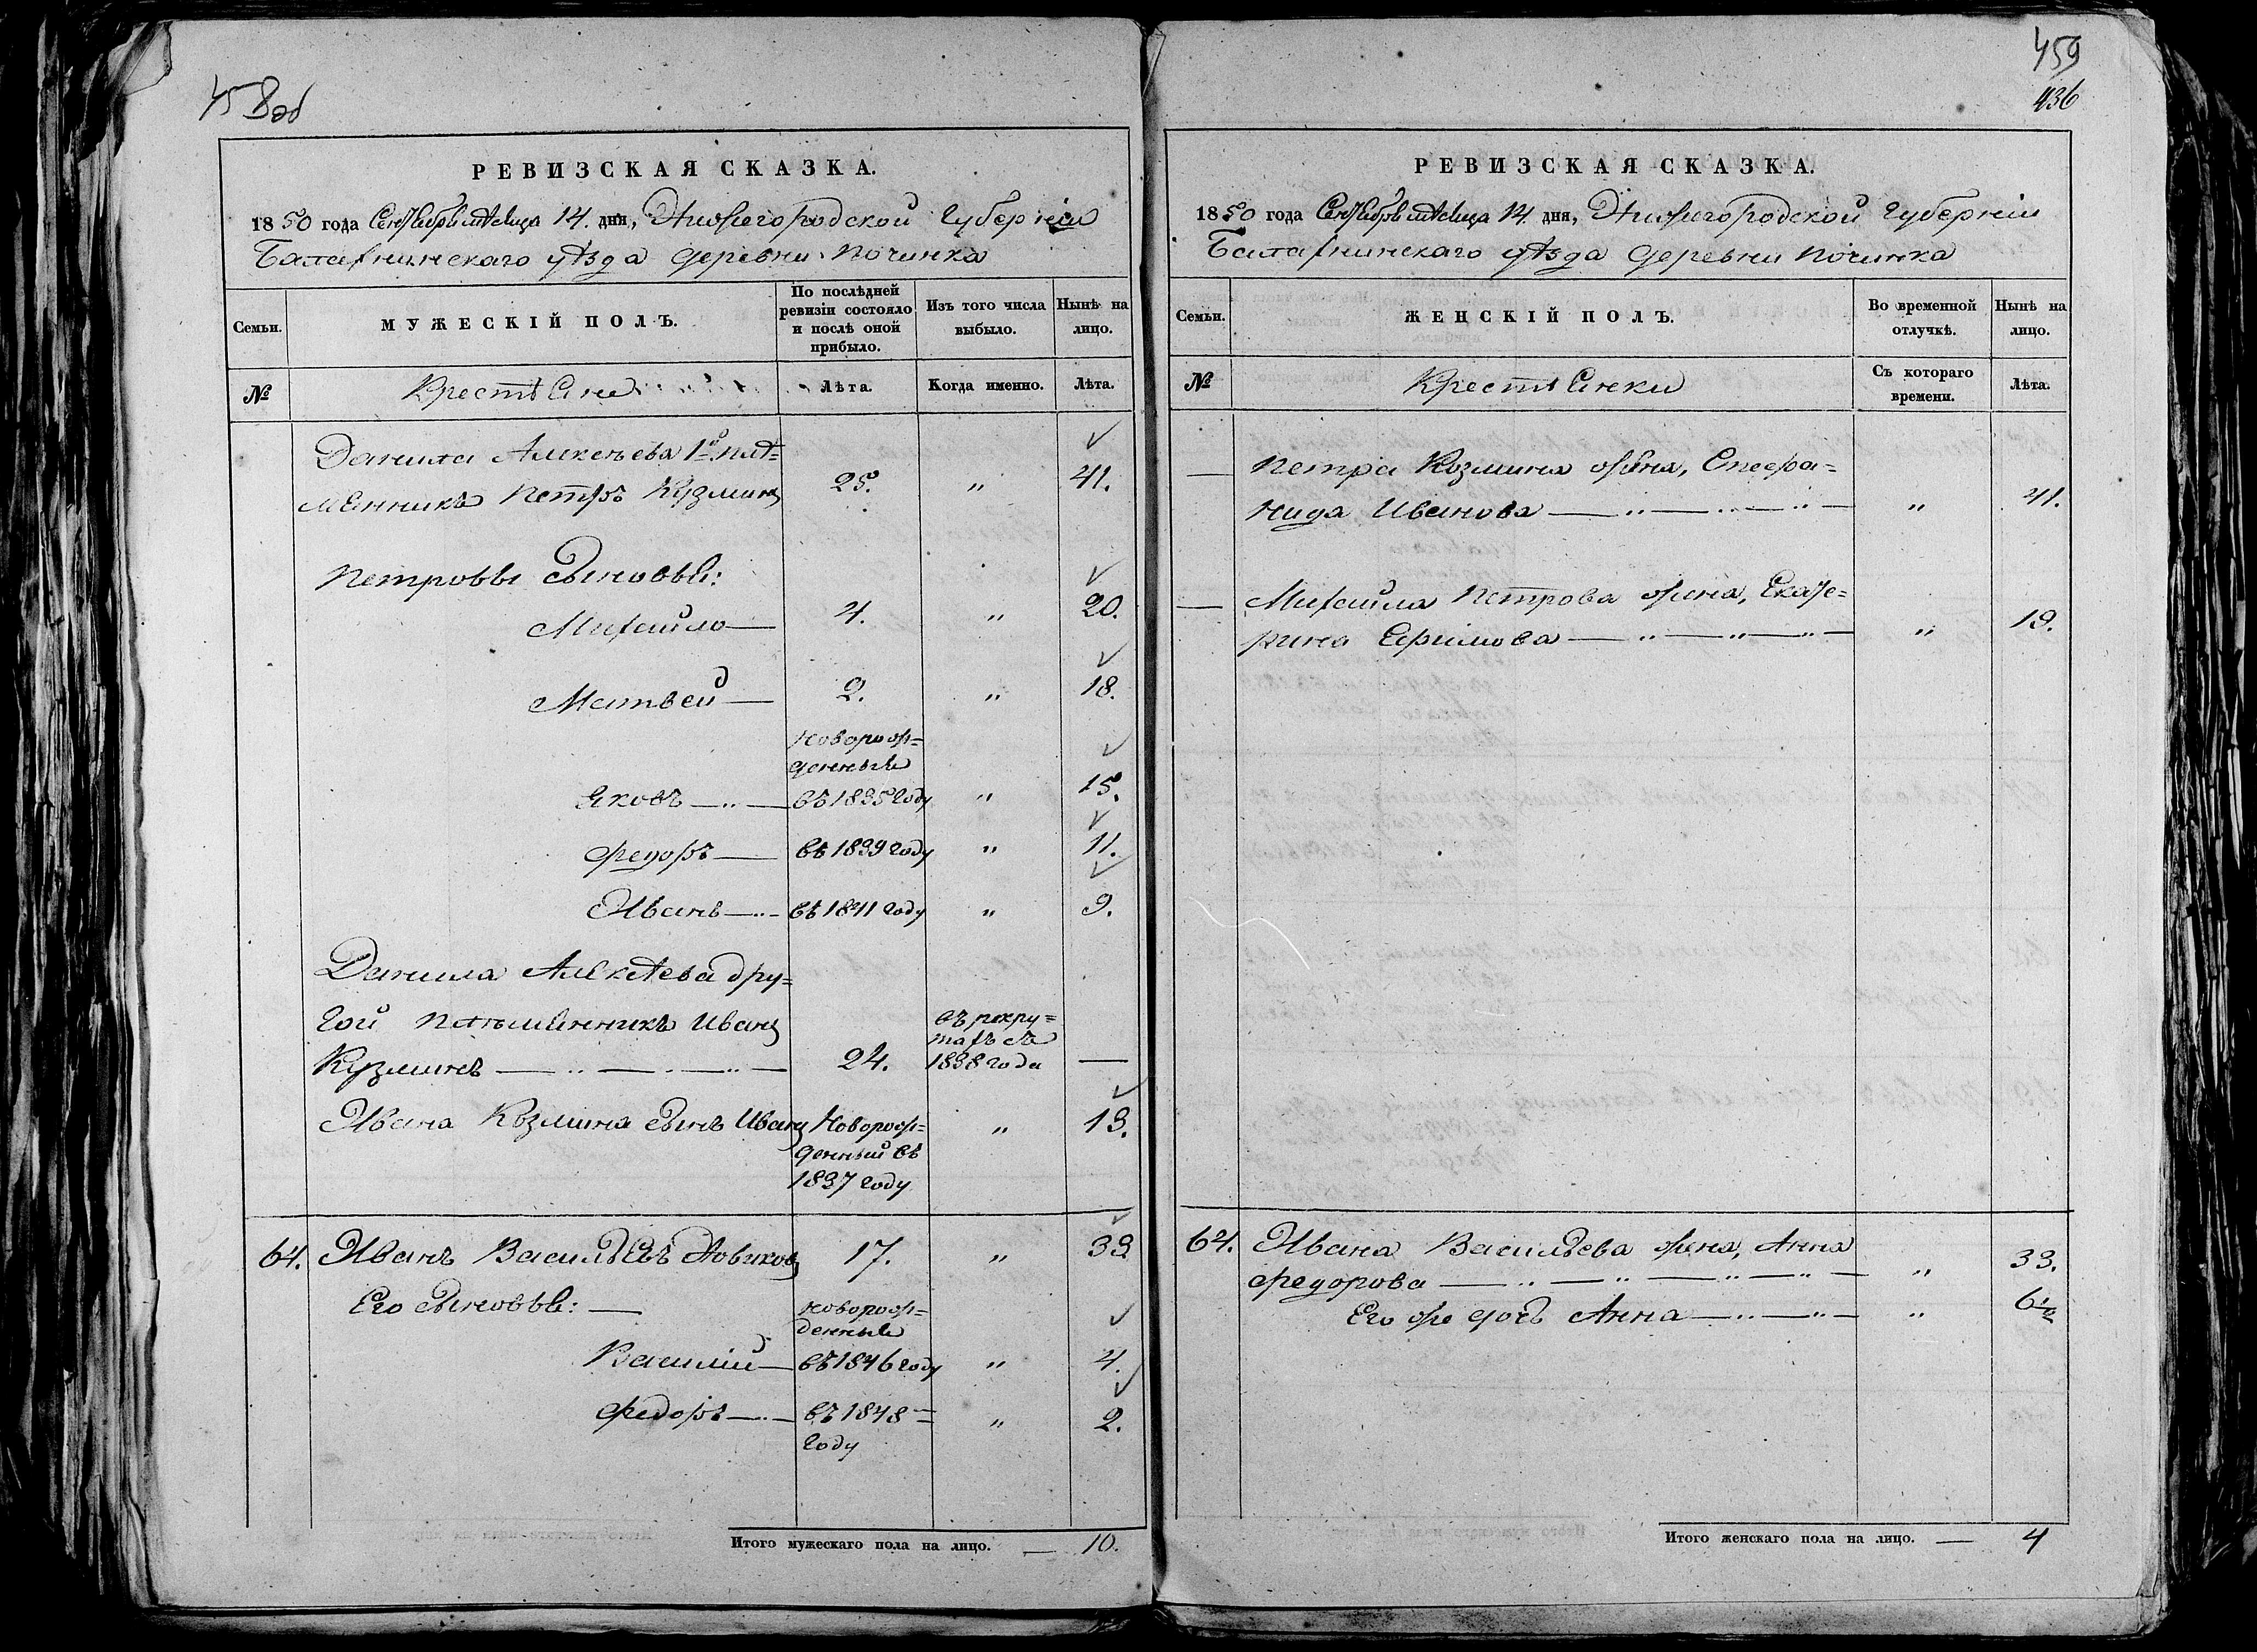 458об
РЕВИЗСКАЯ СКАЗКА.
1850 года Сентября мѣсяца 14. дня, Нижегородской Губерніи
Балахнинскаго уѣзда деревни Починка
Семьи.
МУЖЕСКІЙ ПОЛЪ.
По послѣдней
ревизіи состояло
и послѣ оной
прибыло.
Изъ того числа
выбыло.
Нынѣ на
лицо.
№
Крестьяне
Лѣта.
Когда именно.
Лѣта.
Данила Алексѣева 1й плѣ=
мянникъ Петръ Кузминъ 25. " 41.
Петровы сыновья:
Михайло — 4. " 20.
Матвей — 2. " 18.
новорож=
денные
Яковъ — въ 1835 году " 15.
Федоръ — въ 1839 году " 11.
Иванъ — въ 1841 году " 9.
Данила Алексѣева дру=
гой племянникъ Иванъ
Кузминъ — 24. въ рекру=
тахъ съ
1838 года —
Ивана Козмина сынъ Иванъ Новорож= " 13.
денный въ
1837 году
64. Иванъ Васильевъ Новиковъ 17. " 33.
Его сыновья: — новорож=
денные
Василій — въ 1846 году " 4.
Федоръ — въ 1848 = " 2.
году
Итого мужескаго пола на лицо. — 10.
459
436
РЕВИЗСКАЯ СКАЗКА.
1850 года Сентября мѣсяца 14. дня, Нижегородской Губерніи
Балахнинскаго уѣзда деревни Починка
Семьи.
ЖЕНСКІЙ ПОЛЪ.
Во временной
отлучкѣ.
Нынѣ на
лицо.
№
Крестьянки
Съ котораго
времени.
Лѣта.
— Петра Козмина жена, Степа=
нида Иванова — " 41.
— Михайла Петрова жена, Екате=
рина Ефимова — " 19.
64. Ивана Васильева жена, Анна
Федорова — " 33.
Его же дочь Анна — " 6½
Итого женскаго пола на лицо. — 4